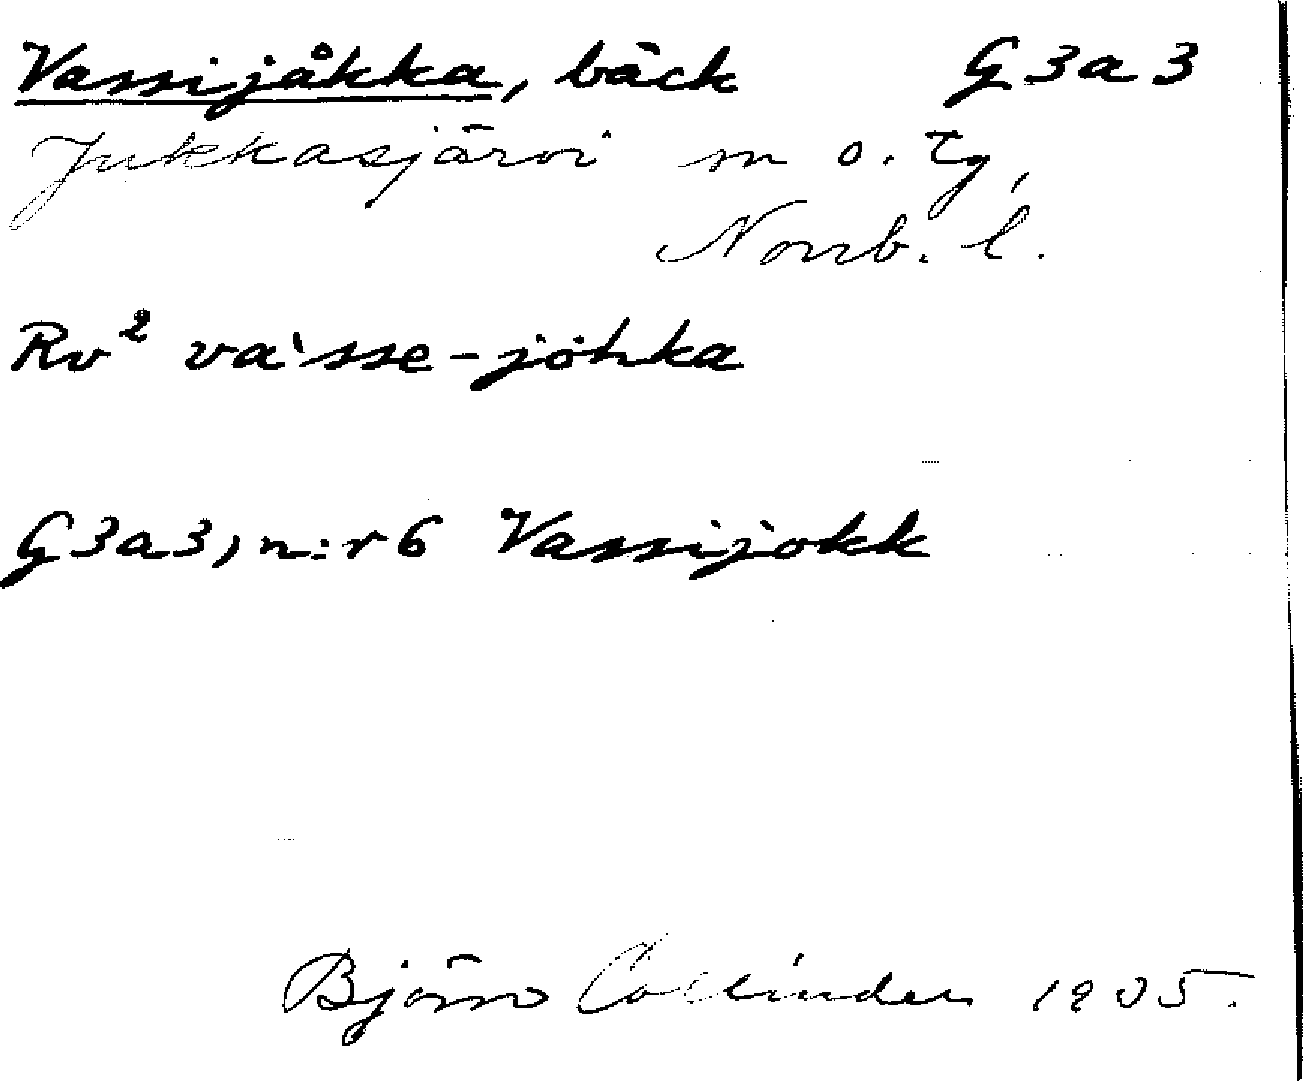 Vassijåkka, bäck G3a3
Jukkasjärvi sn o. tg,
Norrb. l.
Rv² va`sse-jȯhka
G3a3, n:r 6 Vassijokk
Björn Collinder 1905.